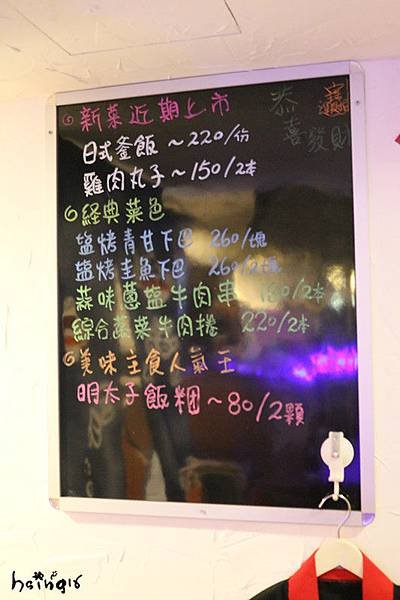 新菜近期上市
日式釜飯～220/份
雞肉丸子～150/2本
經典菜色
塩烤青甘下巴 260/塊
塩烤圭魚下巴 260/2塊
蒜味蔥塩牛肉串 180/2本
綜合蔬菜牛肉捲 220/2本
美味主食人氣王
明太子飯糰～80/2顆
恭
喜發財
hsing16